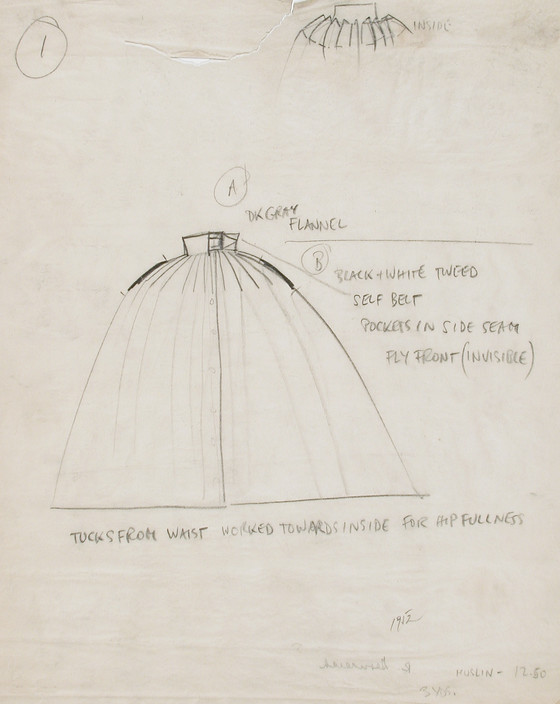 1
INSIDE
A
DK GRAY
FLANNEL
B
BLACK + WHITE TWEED
SELF BELT
POCKETS IN SIDE SEAM
FLY FRONT (INVISIBLE)
TUCKS FROM WAIST WORKED TOWARDS INSIDE FOR HIP FULLNESS
1952
MUSLIN - 12.50